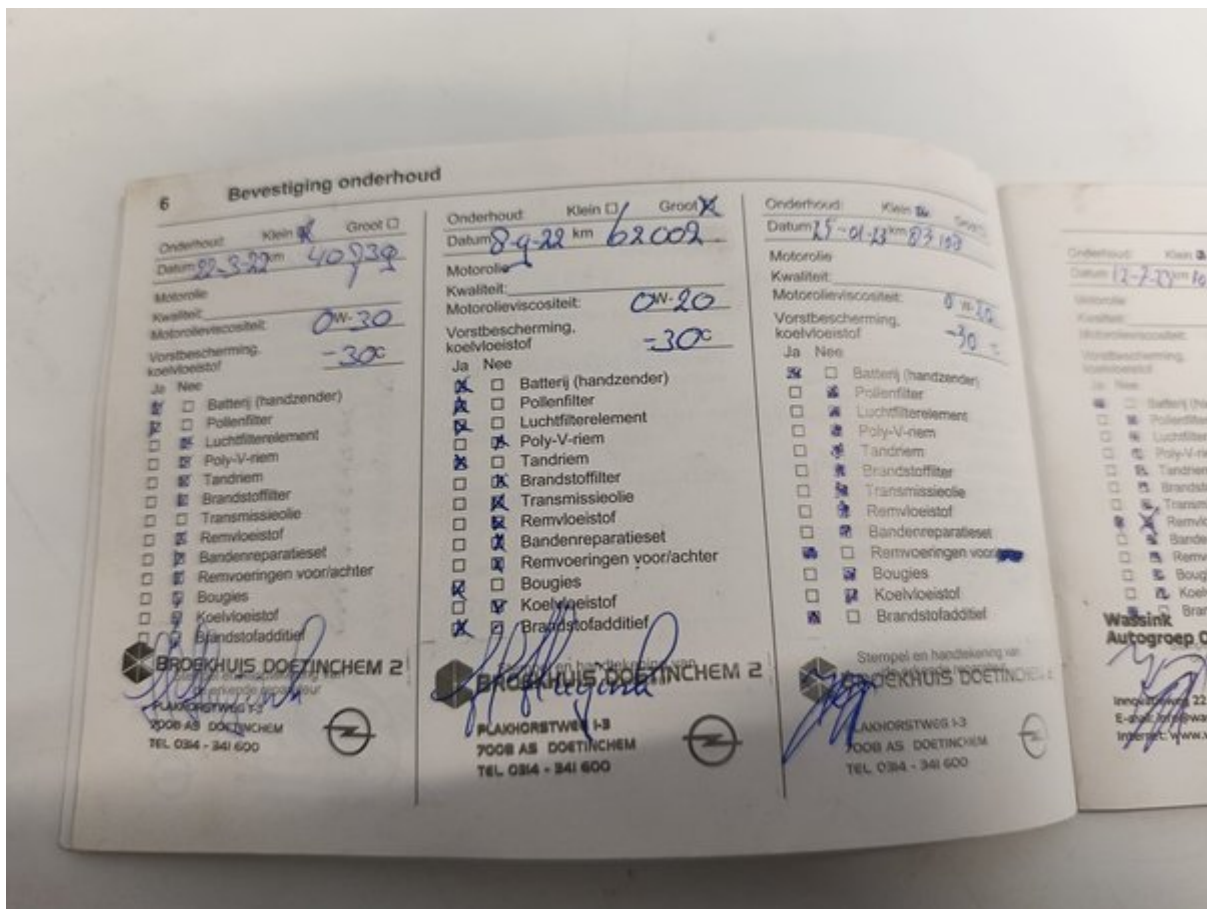 6 Bevestiging onderhoud
Onderhoud: Klein Groot
Datum 22-3-22 km
Motorolie
Kwaliteit:
Motorolieviscositeit: 0W-30
Vorstbescherming,
koelvloeistof -30c
Ja Nee
Batterij (handzender)
Pollenfilter
Luchtfilterelement
Poly-V-riem
Tandriem
Brandstoffilter
Transmissieolie
Remvloeistof
Bandenreparatieset
Remvoeringen voor/achter
Bougies
Koelvloeistof
Brandstofadditief
BROEKHUIS DOETINCHEM 2
Stempel en handtekening van
de erkende reparateur
PLAKHORSTWEG 1-3
7008 AS DOETINCHEM
TEL 0314 - 341 600
Onderhoud: Klein Groot
Datum 8-9-22 km 62002
Motorolie
Kwaliteit:
Motorolieviscositeit: 0W-20
Vorstbescherming,
koelvloeistof -30c
Ja Nee
Batterij (handzender)
Pollenfilter
Luchtfilterelement
Poly-V-riem
Tandriem
Brandstoffilter
Transmissieolie
Remvloeistof
Bandenreparatieset
Remvoeringen voor/achter
Bougies
Koelvloeistof
Brandstofadditief
Stempel en handtekening van
BROEKHUIS DOETINCHEM 2
PLAKHORSTWEG 1-3
7008 AS DOETINCHEM
TEL 0314 - 341 600
Onderhoud: Klein Groot
Datum 25-01-23 km
Motorolie
Kwaliteit:
Motorolieviscositeit: 0W-30
Vorstbescherming,
koelvloeistof -30 c
Ja Nee
Batterij (handzender)
Pollenfilter
Luchtfilterelement
Poly-V-riem
Tandriem
Brandstoffilter
Transmissieolie
Remvloeistof
Bandenreparatieset
Remvoeringen
Bougies
Koelvloeistof
Brandstofadditief
Stempel en handtekening van
de erkende reparateur
BROEKHUIS DOETINCHEM 2
PLAKHORSTWEG 1-3
7008 AS DOETINCHEM
TEL 0314 - 341 600
Onderhoud: Klein
Datum km
Motorolie
Kwaliteit:
Motorolieviscositeit:
Vorstbescherming,
koelvloeistof
Ja Nee
Wassink
Autogroep